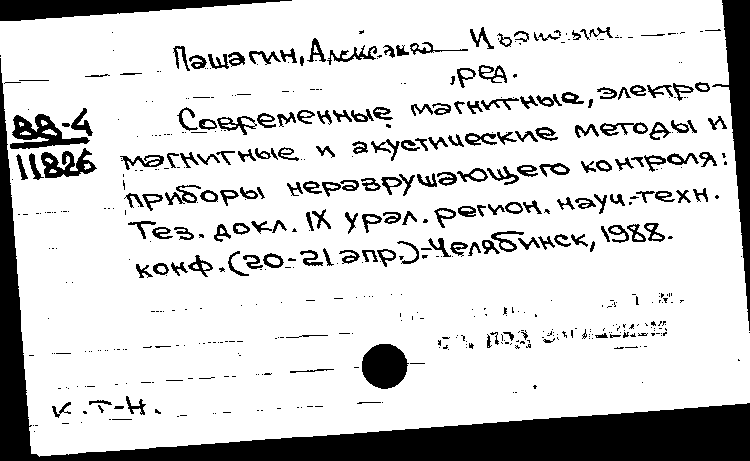 Пашагин, Александр Иванович
, ред.
88-4
11826
Современные магнитные, электро-
магнитные и акустические методы и
приборы неразрушающего контроля:
Тез. докл. IX урал. регион. науч.-техн.
конф. (20-21 апр.).-Челябинск, 1988.
см. под заглавием
к.т-н.